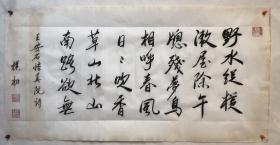 野水縱橫
漱屋除午
窗殘夢鳥
相呼春風
日日吹香
草山北山
南路欲無
王安石悟真院詩
樸初